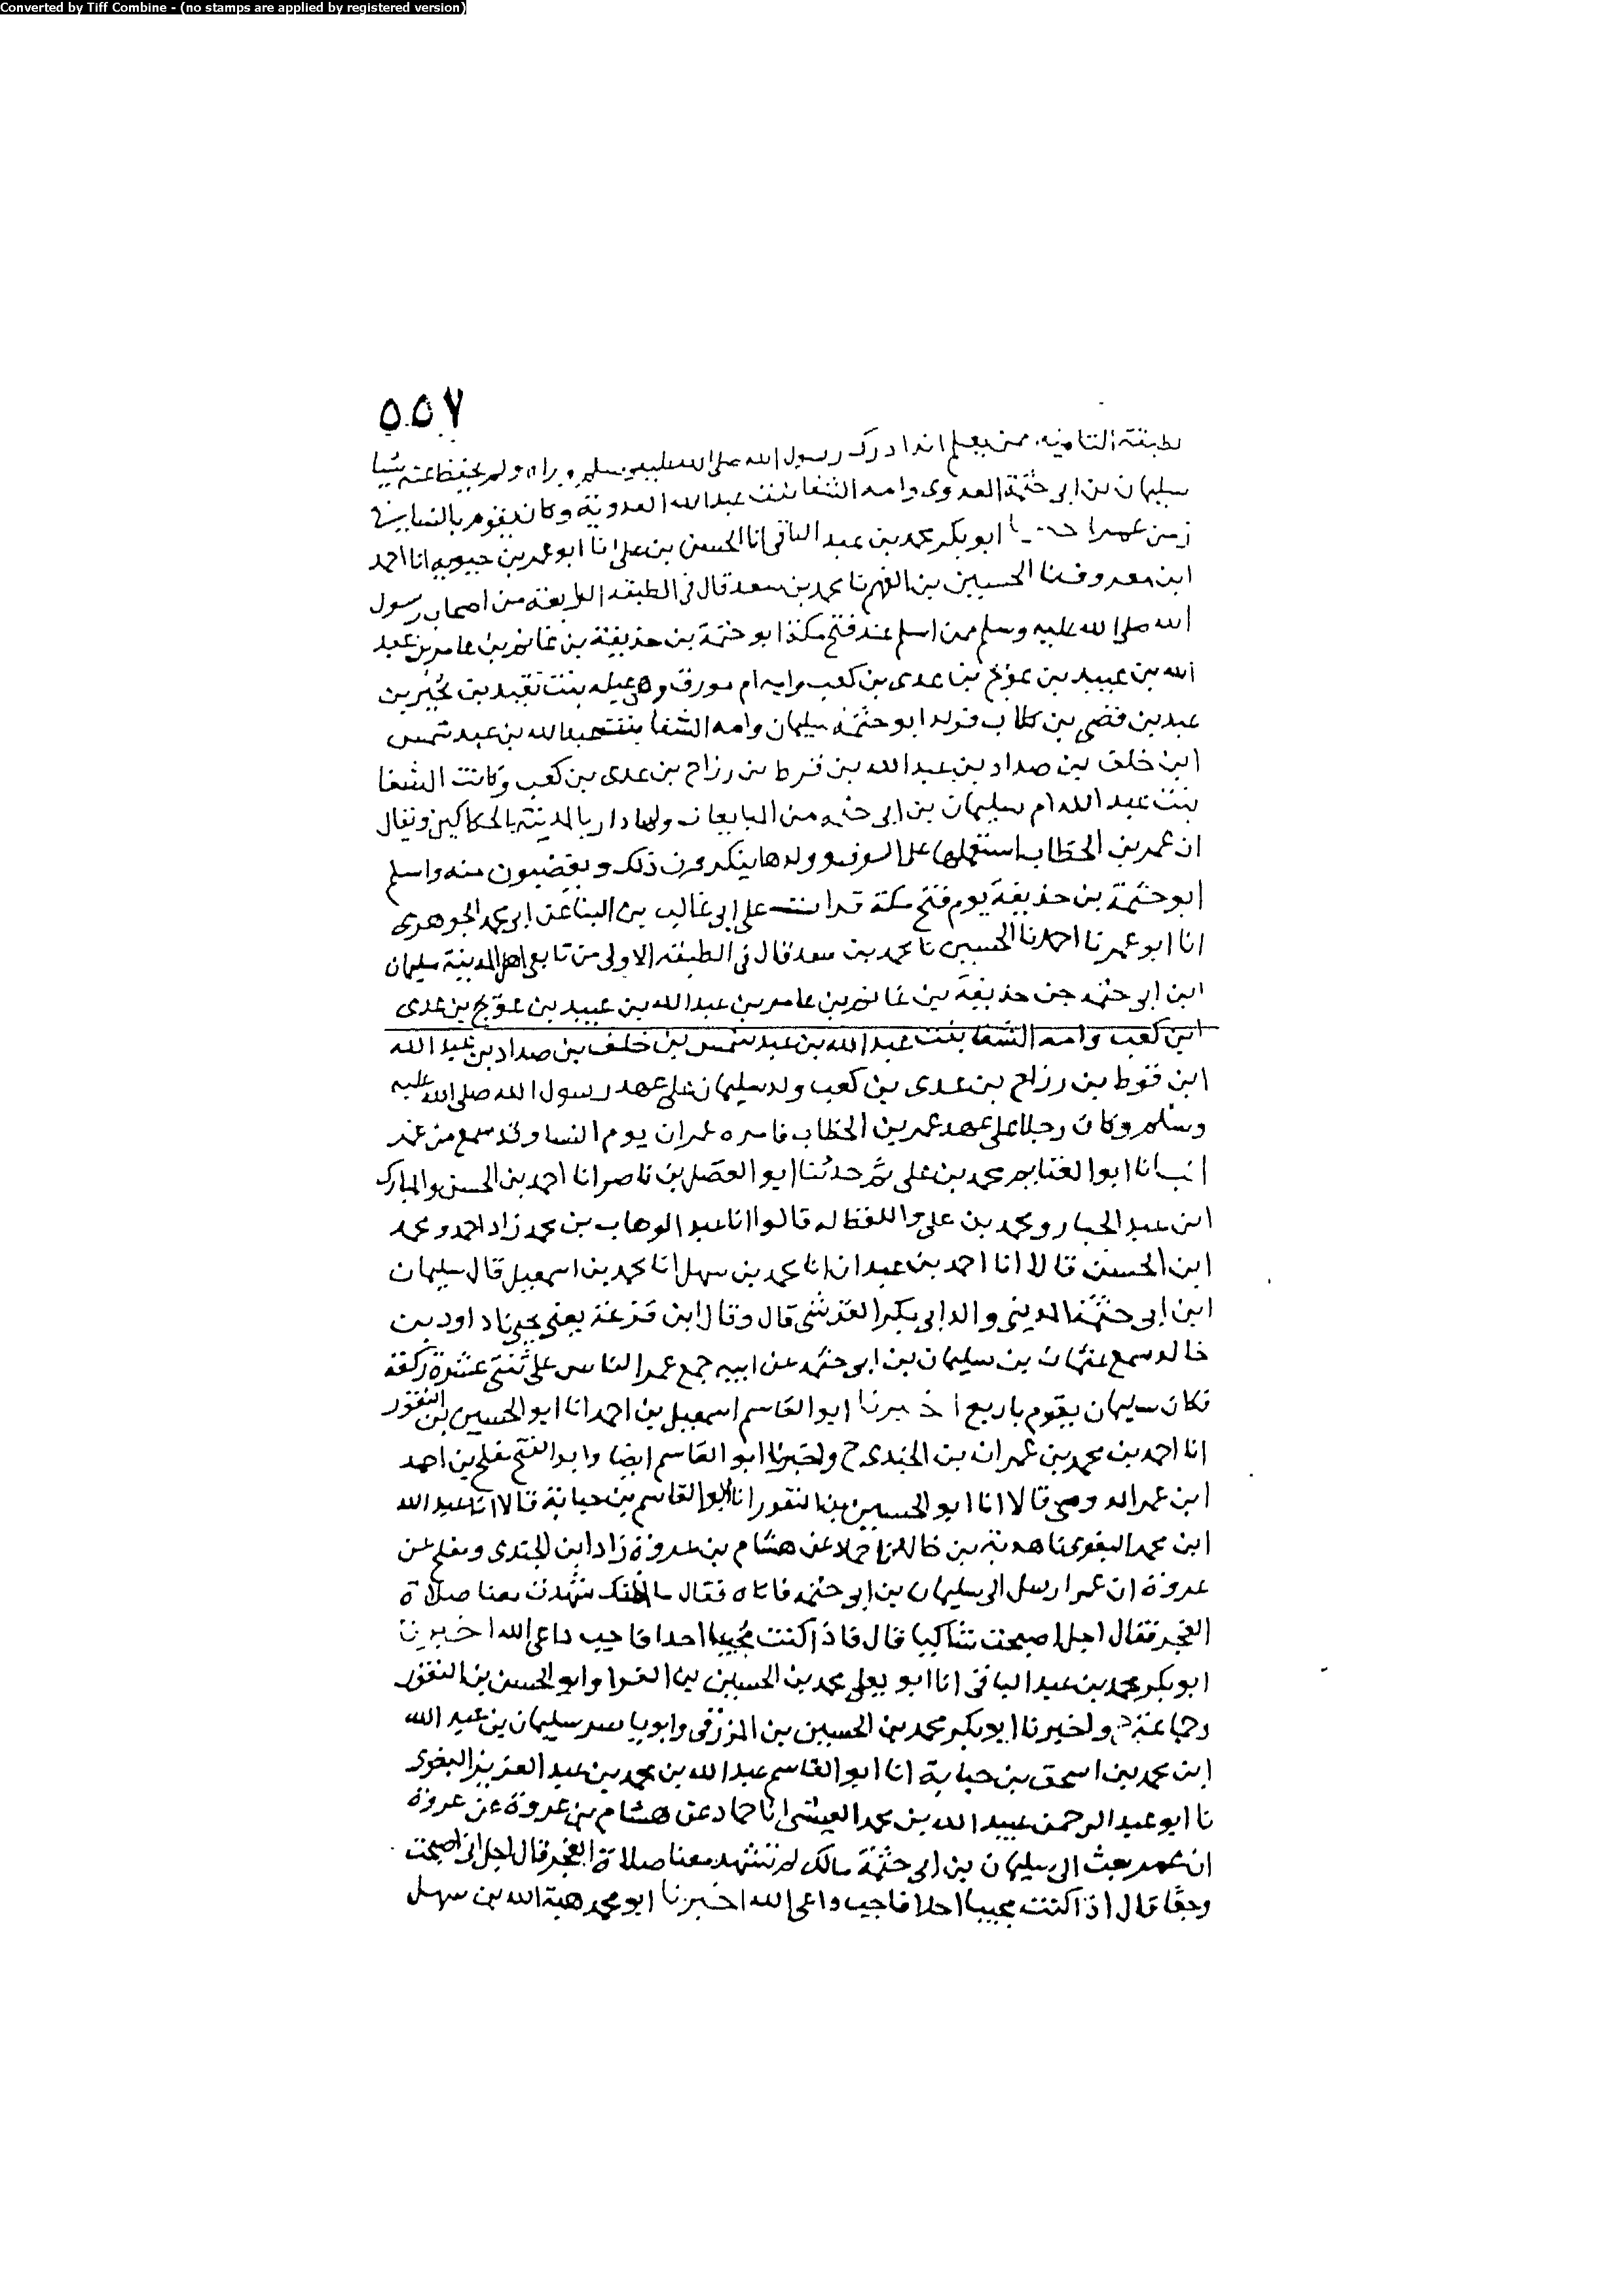 Converted by Tiff Combine - (no stamps are applied by registered version)
٥٥٧
لطبقة الثامنة ممن يعلم انه ادرك رسول الله صلى الله عليه وسلم وراه ولم يحفظ عنه شيا
سليمان بن ابى حثمة العدوى وامه الشفا بنت عبدالله العدوية وكان يقوم بالنسا فى
زمن عمر ابو بكر محمد بن عبد الباقى انا الحسن بن على انا ابو عمر بن حيويه انا احمد
ابن معروف نا الحسين بن الفهم نا محمد بن سعد قال فى الطبقة الرابعة من اصحاب رسول
الله صلى الله عليه وسلم ممن اسلم عند فتح مكة ابو حثمة بن حذيفة بن غانم بن عامر بن عبد
الله بن عبيد بن عويج بن عدى بن كعب وامه ام مورق وهى بنت بن بن
عبد بن قصى بن كلاب فولد ابو حثمة سليمان وامه الشفا بنت عبد الله بن عبد شمس
ابن خلف بن صداد بن عبد الله بن قرط بن رزاح بن عدى بن كعب وكانت الشفا
بنت عبد الله ام سليمان بن ابى حثمه من المبايعات ولها دار بالمدينة بالحكاكين ويقال
ان عمر بن الخطاب استعملها على السوق وولدها ينكرون ذلك ويغضبون منه واسلم
ابو حثمة بن حذيفة يوم فتح مكة قرات على ابى غالب بن البنا عن ابى محمد الجوهرى
انا ابو عمر نا احمد نا الحسين نا محمد بن سعد قال فى الطبقه الاولى من تابعى اهل المدينة سليمان
ابن ابى حثمه بن حذيفة بن غانم بن عامر بن عبد الله بن عبيد بن عويج بن عدى
ابن كعب وامه الشفا بنت عبد الله بن عبد شمس بن خلف بن صداد بن عبد الله
ابن قوط بن رزاح بن عدى بن كعب ولد سليمان على عهد رسول الله صلى الله عليه
وسلم وكان رجلا على عهد عمر بن الخطاب فامره عمر ان يوم النسا وقد سمع من عمر
انبانا ابو الغنايم محمد بن على ثم حدثنا ابو الفضل بن ناصر انا احمد بن الحسن والمبارك
ابن عبد الجبار ومحمد بن على واللفظ له قالوا انا عبد الوهاب بن محمد زاد احمد ومحمد
ابن الحسن قالا انا احمد بن عبدان انا محمد بن سهل انا محمد بن اسمعيل قال سليمان
ابن ابى حثمة المدينى والد ابى بكر القرشى قال وقال ابن قزعة يعنى يحيى نا داود بن
خالد سمع عثمان بن سليمان بن ابى حثمه عن ابيه جمع عمر الناس على ثنتى عشرة ركعة
فكان سليمان يقوم باربع اخبرنا ابو القاسم اسمعيل بن احمد انا ابو الحسين بن النقور
انا احمد بن محمد بن عمران بن الجندى ح واخبرنا ابو القاسم ايضا وابو الفتح مفلح بن احمد
ابن عمر الدومى قالا انا ابو الحسين بن النقور انا ابو القاسم بن حبابة قالا انا عبد الله
ابن محمد البغوى نا هدبة بن خالد نا حماد عن هشام بن عروة زاد ابن الجندى ومفلح عن
عروة ان عمر ارسل الى سليمان بن ابى حثمه فاتاه فقال شهدت معنا صلاة
الفجر فقال اجل اصبحت شاكيا قال فاذا كنت مجيبا احدا فاجب داعى الله اخبرنا
ابو بكر محمد بن عبد الباقى انا ابو يعلى محمد بن الحسين بن الفرا وابو الحسن بن النقور
وجماعة ح واخبرنا ابو بكر محمد بن الحسين بن المزرفى وابو ياسر سليمان بن عبد الله
ابن محمد بن اسحق بن حبابة انا ابو القاسم عبد الله بن محمد بن عبد العزيز البغوى
نا ابو عبد الرحمن عبيد الله بن محمد العيشى انا حماد عن هشام بن عروة عن عروة
ان عمر بعث الى سليمان بن ابى حثمة مالك لم تشهد معنا صلاة الفجر قال اجل انى اصبحت
وجعا قال اذا كنت مجيبا احدا فاجب داعى الله اخبرنا ابو محمد هبة الله بن سهل